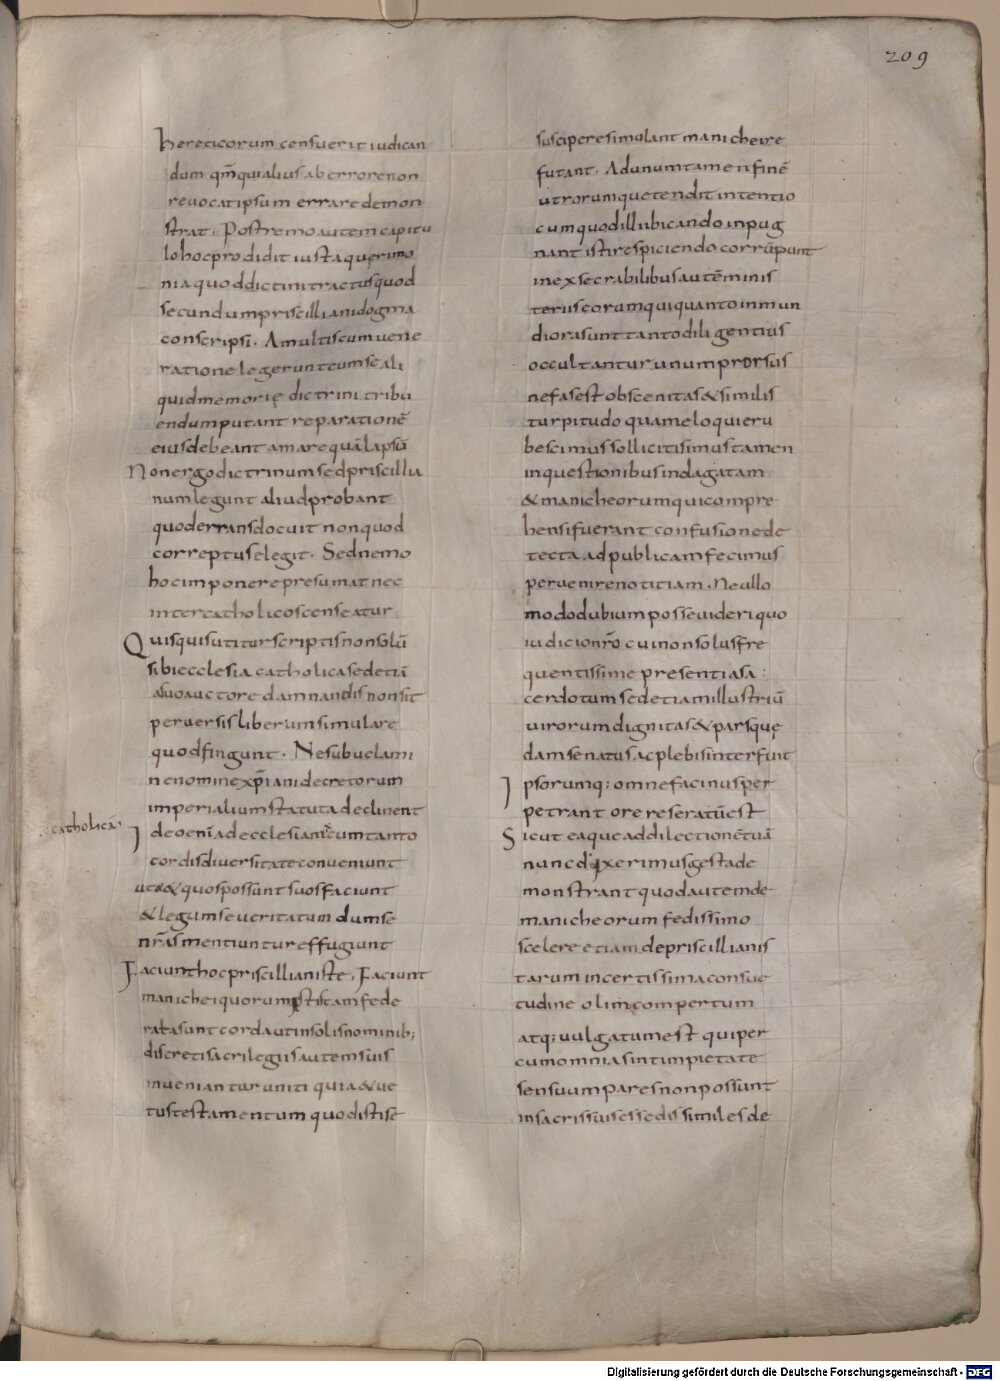 209
hereticorum censuerit iudican
dum qm̄ qui alius ab errore non
reuocat ipsum errare demon
strat. Postremo autem capitu
lo hoc prodidit iusta querimo
nia quod dictini tractus quod
secundum priscilliani dogma
conscripsi. A multis cum uene
ratione legerunt cum se ali
quid memorię dictrini tribu
endum putant reparationē
eius debeant amare quā lapsū
Non ergo dictrinum sed priscillia
num legunt aliud probant
quod errans docuit non quod
correptus elegit. Sed nemo
hoc imponere presumat nec
inter catholicos censeatur
Quisquis utitur scriptis non solū
sibi ecclesia catholica sed etiā
a suo auctore damnandis non sit
peruersis liberum simulare
quod fingunt. Ne sub uelami
ne nomine xp̄iani decretorum
imperialium statuta declinent
catholicā
Ideo enī ad ecclesiam cum tanto
cordis diuersitate conueniunt
ut & quos possunt suos faciunt
& legum seueritatum dum se
nr̄as mentiuntur effugiunt
Faciunt hoc priscillianiste, Faciunt
manichei quorum istam fede
rata sunt corda ut in solis nominib;
discreti sacrilegiis autem suis
inueniantur uniti quia & ue
tus testamentum quod isti se
suscipere simulant manichei re
futant. Ad unum tamen finē
utrorumque tendit intentio
cum quod illi ubicando inpug
nant isti respiciendo corrūpunt
in exsecrabilibus autē minis
teriis eorum qui quanto inmun
diora sunt tanto diligentius
occultantur unum prorsus
nefas est obscenitas & similis
turpitudo quam eloqui eru
bescimus sollicitissimus tamen
inquestionibus indagatam
& manicheorum qui compre
hensi fuerant confusione de
tecta ad publicam fecimus
peruenire notitiam. Ne ullo
modo dubium posse uideri quo
iudicio nr̄o cui non solus fre
quentissime presentia sa:
cerdotum sed etiam illustriū
uirorum dignitas & pars quę
dam senatus ac plebis interfuit
Ipsorumq; omne facinus per
petrant ore reseratū est
Sicut ea que ad dilectionē tuā
nunc dixerimus gesta de
monstrant quod autem de
manicheorum fedissimo
scelere etiam de priscillianis
tarum incertissima consue
tudine olim compertum
atq; uulgatum est qui per
cum omnia sint impietate
sensuum pares non possunt
in sacris suis esse dissimiles de
Digitalisierung gefördert durch die Deutsche Forschungsgemeinschaft - DFG